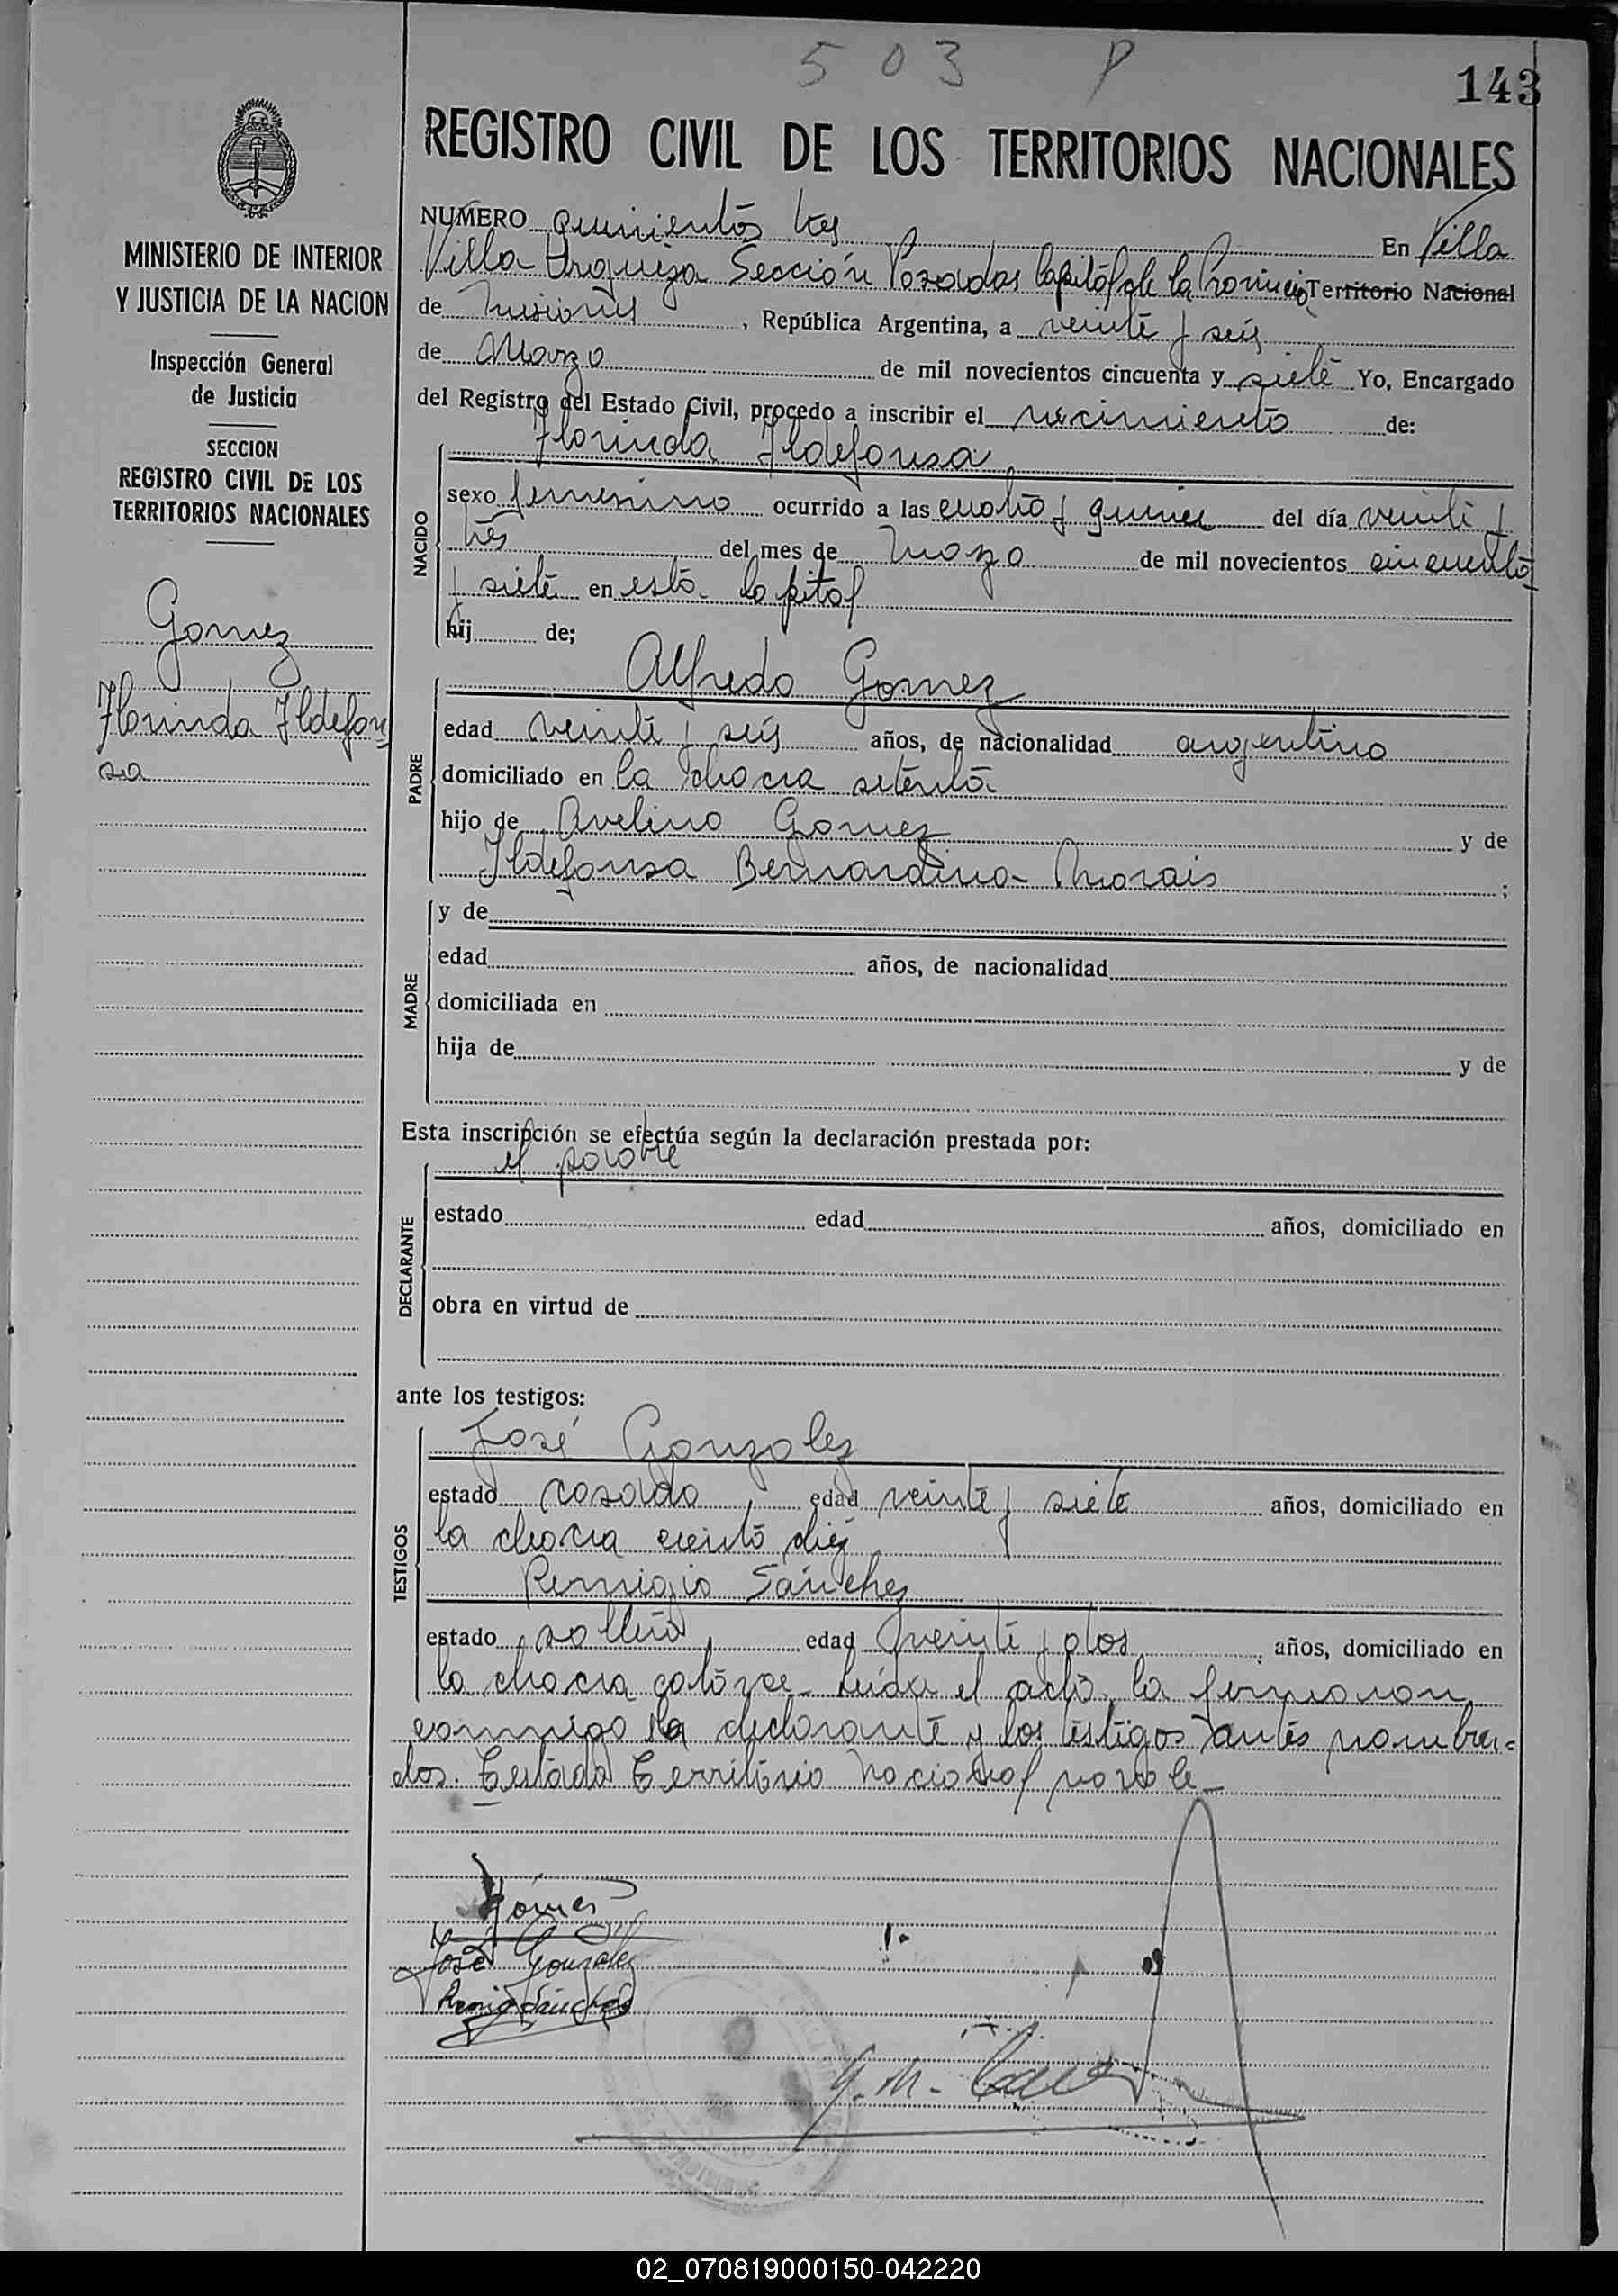 503 P
143
REGISTRO CIVIL DE LOS TERRITORIOS NACIONALES
MINISTERIO DE INTERIOR
Y JUSTICIA DE LA NACION
Inspección General
de Justicia
SECCION
REGISTRO CIVIL DE LOS
TERRITORIOS NACIONALES
Gomez
Florinda Ildefon
sa
NUMERO quinientos tres En Villa
Villa Urquiza Sección Posadas Capital de la Provincia Territorio Nacional
de Misiones, República Argentina, a veinte y seis
de Marzo de mil novecientos cincuenta y siete Yo, Encargado
del Registro del Estado Civil, procedo a inscribir el nacimiento de:
Florinda Ildefonsa
NACIDO
sexo femenino ocurrido a las cuatro y quince del día veinte y
tres del mes de Marzo de mil novecientos cincuenta
y siete en esta capital
hij de;
Alfredo Gomez
PADRE
edad veinte y seis años, de nacionalidad argentino
domiciliado en la chacra setenta
hijo de Avelino Gomez y de
Ildefonsa Bernardina Morais ;
MADRE
y de
edad años, de nacionalidad
domiciliada en
hija de y de
Esta inscripción se efectúa según la declaración prestada por:
el padre
DECLARANTE
estado edad años, domiciliado en
obra en virtud de
ante los testigos:
José Gonzalez
TESTIGOS
estado casado, edad veinte y siete años, domiciliado en
la chacra ciento diez
Remigio Sánchez
estado soltero, edad veinte y dos años, domiciliado en
la chacra catorce leida el acta, la firmaron
conmigo la declarante y los testigos antes nombra=
dos. Testado Territorio Nacional no vale
Gómez
José Gonzalez
Remigio Sánchez
02_070819000150-042220